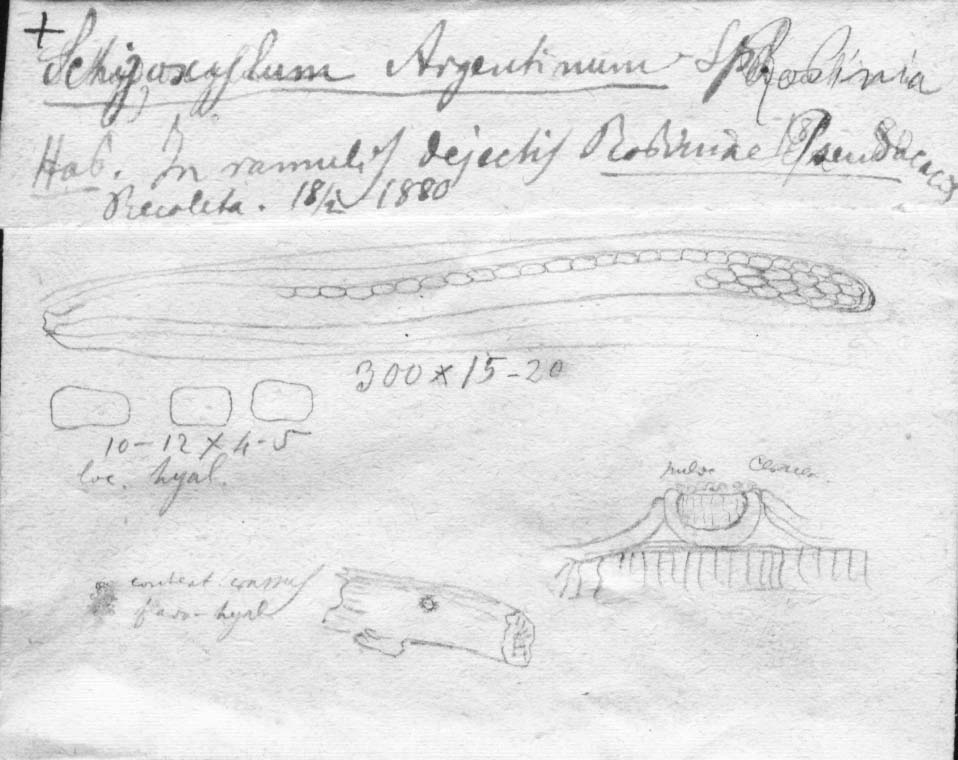 + Schizoxylum Argentinum Sp. Robinia
Hab. In ramulis dejectis Robiniae Pseudacaciae
Recoleta. 18/2 1880
300 x 15-20
10-12 x 4-5
loc. hyal.
pulv. 
content. crassus
flavo-hyal